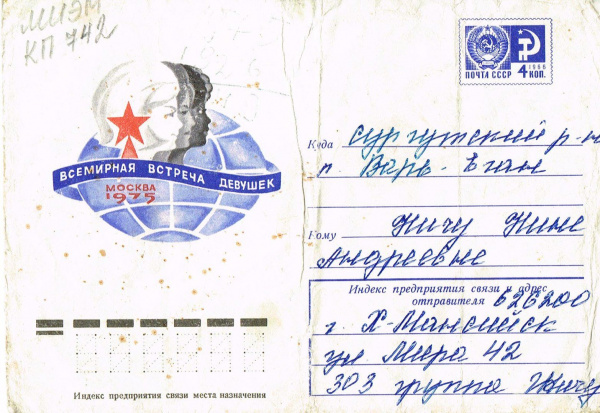 МИЭМ
КП 742
1966
ПОЧТА СССР 4 КОП.
ВСЕМИРНАЯ ВСТРЕЧА ДЕВУШЕК
МОСКВА
1975
Куда Сургутский р-н
п. Варь-Еган
Кому Айчу Нине
Андреевне
Индекс предприятия связи и адрес
отправителя 626200
г. Х-Мансийск
ул Мира 42
303 группа Айчу
Индекс предприятия связи места назначения